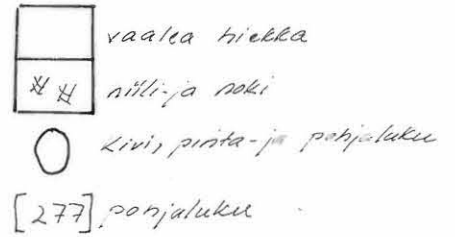 vaalea hiekka
hiili-ja noki
kivi, pinta-ja pohjaluku
[277] pohjaluku